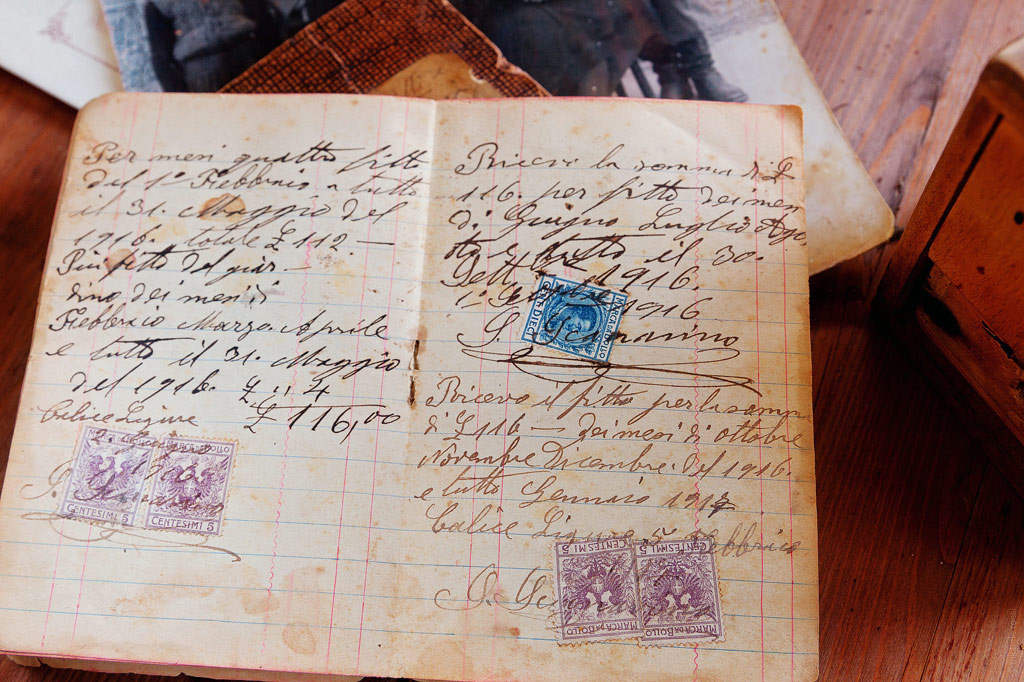 Per mesi quattro fitto
dal 1º Febbraio a tutto
il 31. Maggio del
1916. totale £ 112 —
Più fitto del giar-
dino dei mesi di
Febbraio Marzo. Aprile
e tutto il 31. Maggio
del 1916. £ 4
£ 116,00
Calice Ligure
1916
CENTESIMI 5
CENTESIMI 5
Ricevo la somma di £
116. per fitto dei mesi
di Giugno Luglio Ago.
e tutto il 30.
Sett. 1916.
1º 1916
MARCA DA BOLLO
CENT. DIECI
Ricevo il fitto per la somma
di £ 116 — dei mesi di ottobre
Novembre Dicembre. del 1916.
e tutto Gennaio 1917
Calice Ligure 5 Febbraio
CENTESIMI 5
CENTESIMI 5
MARCA DA BOLLO
MARCA DA BOLLO